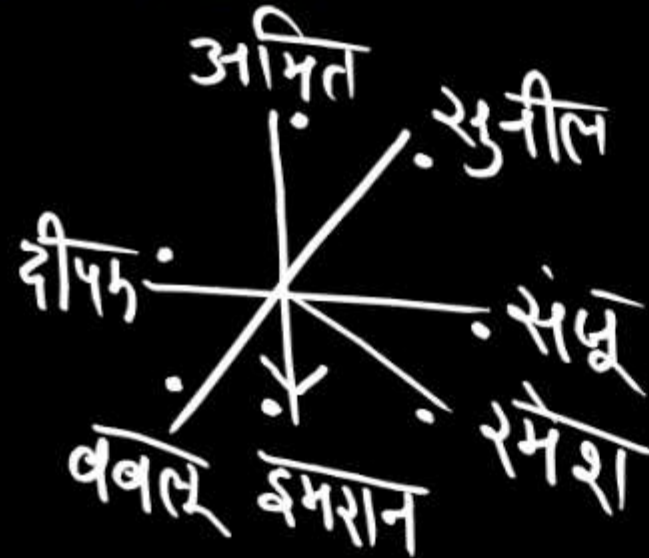 अमित
सुनील
दीपक
संजू
रमेश
बबलू इमरान